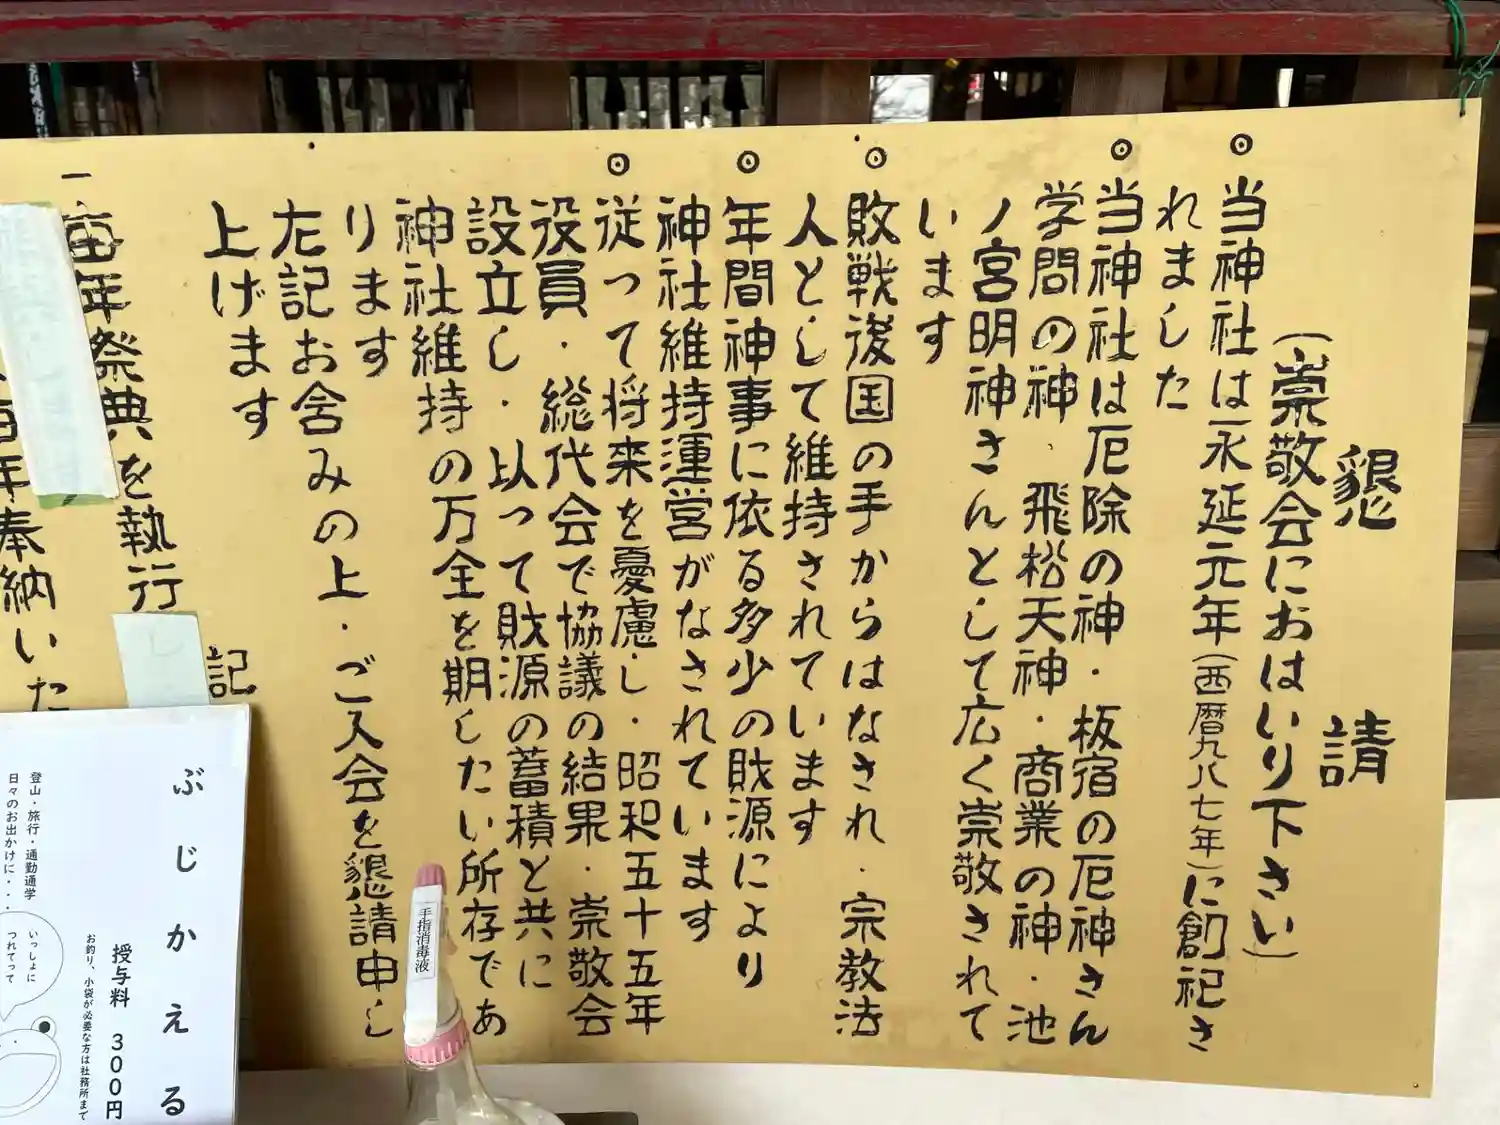 懇請
(崇敬会におはいり下さい)
◎当神社は永延元年(西暦九八七年)に創祀さ
れました
◎当神社は厄除の神・板宿の厄神さん
学問の神、飛松天神・商業の神・池
ノ宮明神さんとして広く崇敬されて
います
◎敗戦後国の手からはなされ・宗教法
人として維持されています
◎年間神事に依る多少の財源により
神社維持運営がなされています
◎従って将来を憂慮し・昭和五十五年
役員・総代会で協議の結果・崇敬会
設立し・以って財源の蓄積と共に
神社維持の万全を期したい所存であ
ります
左記お含みの上・ご入会を懇請申し
上げます
記
一毎年祭典を執行
毎年奉納いた
手指消毒液
ぶじかえる
授与料 300円
お釣り、小袋が必要な方は社務所まで
登山・旅行・通勤通学
日々のお出かけに・・・
いっしょに
つれてって